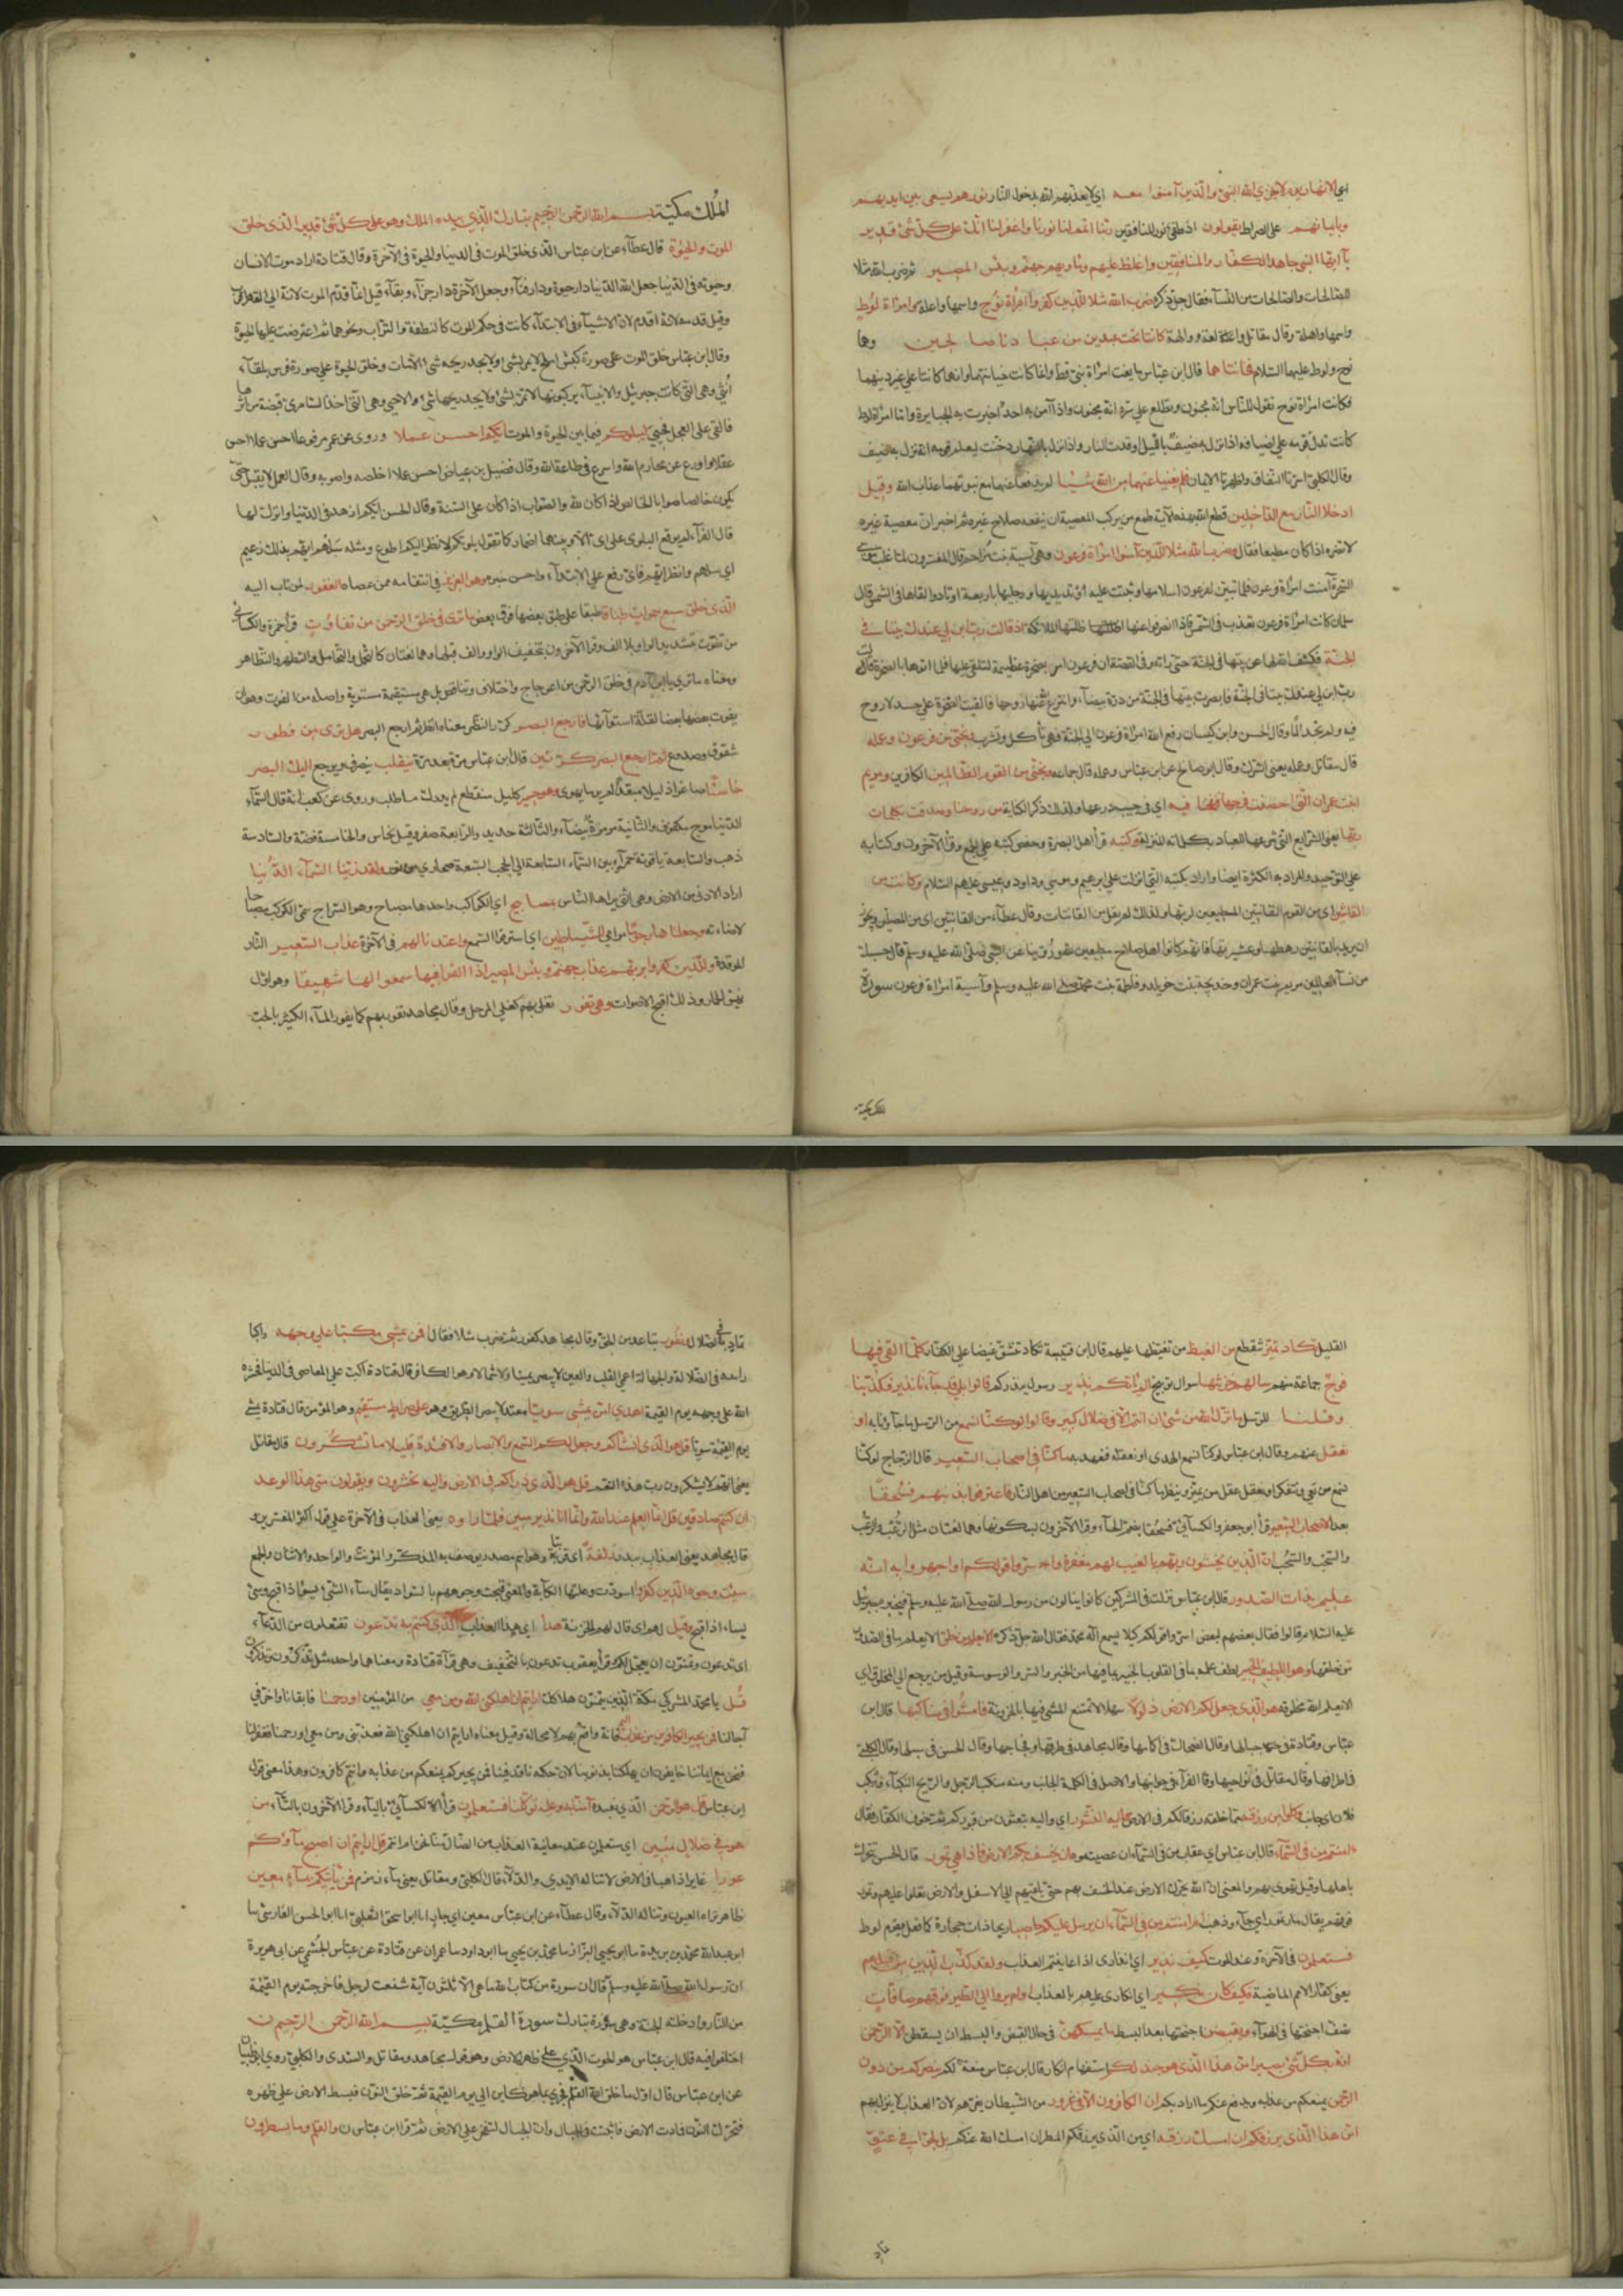 يوم لا يخزي الله النبي والذين آمنوا معه اي لا يعذبهم الله بدخول النار نورهم يسعى بين ايديهم
وبايمانهم على الصراط يقولون اذ طفئ نور المنافقين ربنا اتمم لنا نورنا واغفر لنا انك على كل شئ قدير
يآ ايها النبي جاهد الكفار والمنافقين واغلظ عليهم ومأويهم جهنم وبئس المصير ثم ضرب الله مثلا
للصالحات والصالحات من النسآء فقال جل ذكره ضرب الله مثلا للذين كفروا امرأة نوح واسمها واعلة وامرأة لوط
واسمها واهلة وقال مقاتل والعة ووالهة كانتا تحت عبدين من عبادنا صالحين وهما
نوح ولوط عليهما السلام فخانتاهما قال ابن عباس ما بغت امرأة نبي قط وانما كانت خيانتهما انهما كانتا على غير دينهما
فكانت امرأة نوح تقول للناس انه مجنون وتطلع على سره انه مجنون واذا آمن به احد اخبرت به الجبابرة واما امرأة لوط
كانت تدل قومه على اضيافه اذا نزل به ضيف بالليل اوقدت النار واذا نزل بالنهار دخنت ليعلم قومه انه نزل به ضيف
وقال الكلبي اسرتا النفاق واظهرتا الايمان فلم يغنيا عنهما من الله شيئا لم يدفعا عنهما مع نبوتهما عذاب الله وقيل
ادخلا النار مع الداخلين قطع الله بهذه الآية طمع من يركب المعصية ان ينفعه صلاح غيره ثم اخبر ان معصية غيره
لا تضره اذا كان مطيعا فقال وضرب الله مثلا للذين آمنوا امرأة فرعون وهي آسية بنت مزاحم قال المفسرون لما غلب موسى
السحرة آمنت امرأة فرعون فلما تبين لفرعون اسلامها وثبتت عليه اوتد يديها ورجليها باربعة اوتاد والقاها في الشمس قال
سلمان كانت امرأة فرعون تعذب في الشمس فاذا انصرفوا عنها اظلتها الملائكة اذ قالت رب ابن لي عندك بيتا في
الجنة فكشف الله لها عن بيتها في الجنة حتى رأته وفي القصة ان فرعون امر بصخرة عظيمة لتلقى عليها فلما اتوها بالصخرة قالت
رب ابن لي عندك بيتا في الجنة فابصرت بيتها في الجنة من درة بيضآء وانتزع الله عنها روحها فالقيت الصخرة على جسد لا روح
فيه ولم تجد الما وقال الحسن وابن كيسان رفع الله امرأة فرعون الى الجنة فهي تأكل وتشرب ونجني من فرعون وعمله
قال مقاتل وعمله يعني الشرك وقال ابو صالح عن ابن عباس وعمله قال جماعه ونجني من القوم الظالمين الكافرين ومريم
ابنت عمران التي احصنت فرجها فنفخنا فيه اي في جيب درعها ولذلك ذكر الكناية من روحنا وصدقت بكلمات
ربها يعني الشرايع التي شرعها للعباد بكلماته المنزلة وكتبه قرأ اهل البصرة وحفص كتبه على الجمع وقرأ الآخرون وكتابه
على التوحيد والمراد به الكثرة ايضا واراد بكتبه التي انزلت على ابرهيم وموسى وداود وعيسى عليهم السلام وكانت من
القانتين اي من القوم القانتين المطيعين لربها ولذلك لم يقل من القانتات وقال عطآء من القانتين اي من المصلين ويجوز
ان يريد بالقانتين رهطها وعشيرتها فانهم كانوا اهل صلاح مطيعين روينا عن النبي صلى الله عليه وسلم قال حسبك
من نسآء العالمين مريم بنت عمران وخديجة بنت خويلد وفاطمة بنت محمد صلى الله عليه وسلم وآسية امرأة فرعون سورة
الملك مكية
الملك مكية بسم الله الرحمن الرحيم تبارك الذي بيده الملك وهو على كل شئ قدير الذي خلق
الموت والحيوة قال عطآء عن ابن عباس الذي خلق الموت في الدنيا والحيوة في الآخرة وقال قتادة اراد موت الانسان
وحيوته في الدنيا جعل الله الدنيا دار حيوة ودار فنآء وجعل الآخرة دار جزآء وبقآء قيل انما قدم الموت لانه الى القهر اقرب
وقيل قدمه لانه اقدم لان الاشيآء في الابتدآء كانت في حكم الموت كالنطفة والتراب ونحوهما ثم اعترضت عليها الحيوة
وقال ابن عباس خلق الموت على صورة كبش املح لا يمر بشئ ولا يجد ريحه شئ الا مات وخلق الحيوة على صورة فرس بلقآء
انثى وهي التي كانت جبرئيل والانبيآء يركبونها لا تمر بشئ ولا يجد ريحها شئ الا حيي وهي التي اخذ السامري قبضة من اثرها
فالقى على العجل فحيي ليبلوكم فيما بين الحيوة والموت ايكم احسن عملا وروي عن عمر مرفوعا احسن عملا احسن
عقلا واورع عن محارم الله واسرع في طاعة الله وقال فضيل بن عياض احسن عملا اخلصه واصوبه وقال العمل لا يقبل حتى
يكون خالصا صوابا الخالص اذا كان لله والصواب اذا كان على السنة وقال الحسن ايكم ازهد في الدنيا واترك لها
قال الفرآء لم يوقع البلوى على اي الا وبينهما اضمار كما تقول بلوتكم لانظر ايكم اطوع ومثله سلهم ايهم بذلك زعيم
اي سلهم وانظر ايهم فاي رفع على الابتدآء واحسن خبره وهو العزيز في انتقامه ممن عصاه الغفور لمن تاب اليه
الذي خلق سبع سموات طباقا طبقا على طبق بعضها فوق بعض ما ترى في خلق الرحمن من تفاوت قرأ حمزة والكسائي
من تفوت بتشديد الواو بلا الف وقرأ الآخرون بتخفيف الواو والف قبلها وهما لغتان كالتحمل والتحامل والتظهر والتظاهر
ومعناه ما ترى يا ابن آدم في خلق الرحمن من اعوجاج واختلاف وتناقض بل هي مستقيمة مستوية واصله من الفوت وهو ان
يفوت بعضها بعضا لقلة استوآئها فارجع البصر كرر النظر معناه انظر ثم ارجع البصر هل ترى من فطور
شقوق وصدوع ثم ارجع البصر كرتين قال ابن عباس مرة بعد مرة ينقلب ينصرف ويرجع اليك البصر
خاسئا صاغرا ذليلا مبعدا لم ير ما يهوى وهو حسير كليل منقطع لم يدرك ما طلب وروي عن كعب انه قال السمآء
الدنيا موج مكفوف والثانية مرمرة بيضآء والثالثة حديد والرابعة صفر وقيل نحاس والخامسة فضة والسادسة
ذهب والسابعة ياقوتة حمرآء وبين السمآء السابعة الى الحجب السبعة صحاري من نور ولقد زينا السمآء الدنيا
اراد الادنى من الارض وهي التي يراها الناس بمصابيح اي الكواكب واحدها مصباح وهو السراج سمي الكوكب مصباحا
لاضاءته وجعلناها رجوما مرامي للشياطين اي اذا استرقوا السمع واعتدنا لهم في الآخرة عذاب السعير النار
الموقدة وللذين كفروا بربهم عذاب جهنم وبئس المصير اذا القوا فيها سمعوا لها شهيقا وهو اول
نهيق الحمار وذلك اقبح الاصوات وهي تفور تغلي بهم كغلي المرجل وقال مجاهد تفور بهم كما يفور المآء الكثير بالحب
القليل تكاد تميز تتقطع من الغيظ من تغيظها عليهم قال ابن قتيبة تكاد تنشق غيضا على الكفار كلما القي فيها
فوج جماعة منهم سالهم خزنتها سوال توبيخ الم يأتكم نذير رسول ينذركم قالوا بلى قد جآءنا نذير فكذبنا
وقلنا للرسل ما نزل الله من شئ ان انتم الا في ضلال كبير وقالوا لو كنا نسمع من الرسل ما جآؤنا به او
نعقل عنهم وقال ابن عباس لو كنا نسمع الهدى او نعقله فنعمل به ما كنا في اصحاب السعير قال الزجاج لو كنا
نسمع سمع من يعي ويتفكر او نعقل عقل من يميز وينظر ما كنا في اصحاب السعير من اهل النار فاعترفوا بذنبهم فسحقا
بعدا لاصحاب السعير قرأ ابو جعفر والكسآئي فسحقا بضم الحآء وقرأ الآخرون بسكونها وهما لغتان مثل الرعب والرعب
والسحت والسحت ان الذين يخشون ربهم بالغيب لهم مغفرة واجر كبير واسروا قولكم او اجهروا به انه
عليم بذات الصدور قال ابن عباس نزلت في المشركين كانوا ينالون من رسول الله صلى الله عليه وسلم فيخبره جبرئيل
عليه السلام بما قالوا فقال بعضهم لبعض اسروا قولكم كيلا يسمع اله محمد فقال الله جل ذكره الا يعلم من خلق الا يعلم ما في الصدور
من خلقها وهو اللطيف الخبير لطف علمه بما في القلوب الخبير بما فيها من الخير والشر والوسوسة وقيل من يرجع الى المخلوق اي
الا يعلم الله مخلوقه هو الذي جعل لكم الارض ذلولا سهلا لا تمتنع المشي فيها بالحزونة فامشوا في مناكبها قال ابن
عباس وقتادة في جبالها وقال الضحاك في آكامها وقال مجاهد في طرقها وفجاجها وقال الحسن في سبلها وقال الكلبي
في اطرافها وقال مقاتل في نواحيها وقال الفرآء في جوانبها والاصل في الكلمة الجانب ومنه منكب الرجل والريح النكبآء وتنكب
فلان اي جانب وكلوا من رزقه مما خلقه رزقا لكم في الارض واليه النشور اي واليه تبعثون من قبوركم ثم خوف الكفار فقال
ءامنتم من في السمآء قال ابن عباس اي عقاب من في السمآء ان عصيتموه ان يخسف بكم الارض فاذا هي تمور قال الحسن تتحرك
باهلها وقيل تهوي بهم والمعنى ان الله يحرك الارض عند الخسف بهم حتى يلقيهم الى الاسفل والارض تعلوا عليهم وتمور
فوقهم يقال مار يمور اي جآء وذهب ام امنتم من في السمآء ان يرسل عليكم حاصبا ريحا ذات حجارة كما فعل بقوم لوط
فستعلمون في الآخرة وعند الموت كيف نذير اي انذاري اذا عاينتم العذاب ولقد كذب الذين من قبلهم
يعني كفار الامم الماضية فكيف كان نكير اي انكاري عليهم بالعذاب اولم يروا الى الطير فوقهم صافات
تصف اجنحتها في الهوآء ويقبضن اجنحتها بعد البسط ما يمسكهن في حال القبض والبسط ان يسقطن الا الرحمن
انه بكل شئ بصير امن هذا الذي هو جند لكم استفهام انكار قال ابن عباس منعة لكم ينصركم من دون
الرحمن يمنعكم من عذابه ويدفع عنكم ما اراد بكم ان الكافرون الا في غرور من الشيطان يغرهم لان العذاب لا ينزل بهم
امن هذا الذي يرزقكم ان امسك رزقه اي من الذي يرزقكم المطر ان امسك الله عنكم بل لجوا في عتو
تماد
تماد في الضلال ونفور تباعد من الحق وقال مجاهد كفور ثم ضرب مثلا فقال افمن يمشي مكبا على وجهه راكبا
راسه في الضلالة والجهالة اعمى القلب والعين لا يبصر يمينا ولا شمالا وهو الكافر قال قتادة اكب على المعاصي في الدنيا فحشره
الله على وجهه يوم القيمة اهدى امن يمشي سويا معتدلا يبصر الطريق وهو على صراط مستقيم وهو المؤمن قال قتادة يمشي
يوم القيمة سويا قل هو الذي انشأكم وجعل لكم السمع والابصار والافئدة قليلا ما تشكرون قال مقاتل
يعني انهم لا يشكرون رب هذه النعم قل هو الذي ذرأكم في الارض واليه تحشرون ويقولون متى هذا الوعد
ان كنتم صادقين قل انما العلم عند الله وانما انا نذير مبين فلما راوه يعني العذاب في الآخرة على قول اكثر المفسرين و
قال مجاهد يعني العذاب ببدر زلفة اي قريبا وهو اسم مصدر يوصف به المذكر والمؤنث والواحد والاثنان والجمع
سيئت وجوه الذين كفروا اسودت وعلتها الكآبة والمعنى قبحت وجوههم بالسواد يقال سآء الشئ يسوء اذا قبح وسئ
يساء اذا قبح وقيل لهم اي قال لهم الخزنة هذا اي هذا العذاب الذي كنتم به تدعون تفتعلون من الدعآء
اي تدعون وتتمنون ان يعجل لكم وقرأ يعقوب تدعون بالتخفيف وهي قرآة قتادة ومعناهما واحد مثل تذكرون وتذكرون
قل يا محمد لمشركي مكة الذين يتمنون هلاكك ارايتم ان اهلكني الله ومن معي من المؤمنين او رحمنا فابقانا واخر في
آجالنا فمن يجير الكافرين من عذاب اليم فانه واقع بهم لا محالة وقيل معناه ارايتم ان اهلكني الله فعذبني ومن معي او رحمنا فغفر لنا
فنحن مع ايماننا خايفون ان يهلكنا بذنوبنا لان حكمه نافذ فينا فمن يجيركم ويمنعكم من عذابه وانتم كافرون وهذا معنى قول
ابن عباس قل هو الرحمن الذي نعبده آمنا به وعليه توكلنا فستعلمون قرأ الكسآئي باليآء وقرأ الآخرون بالتآء من
هو في ضلال مبين اي ستعلمون عند معاينة العذاب من الضال منا نحن ام انتم قل ارايتم ان اصبح مآؤكم
غورا غايرا ذاهبا في الارض لا تناله الايدي والدلآء قال الكلبي ومقاتل يعني مآء زمزم فمن يأتيكم بمآء معين
ظاهر تراه العيون وتناله الدلآء وقال عطآء عن ابن عباس معين اي جار انا ابو اسحق الثعلبي انا ابو الحسن الفارسي نا
ابو عبدالله محمد بن يزيد نا ابو يحيى البزاز نا محمد بن يحيى نا ابو داود نا عمران عن قتادة عن عباس الجشمي عن ابي هريرة
ان رسول الله صلى الله عليه وسلم قال ان سورة من كتاب الله ما هي الا ثلثون آية شفعت لرجل فاخرجته يوم القيمة
من النار وادخلته الجنة وهي سورة تبارك سورة القلم مكية بسم الله الرحمن الرحيم ن
اختلفوا فيه قال ابن عباس هو الحوت الذي على ظهره الارض وهو قول مجاهد ومقاتل والسدي والكلبي روى ابو ظبيان
عن ابن عباس قال اول ما خلق الله القلم فجرى بما هو كاين الى يوم القيمة ثم خلق النون فبسط الارض على ظهره
فتحرك النون فمادت الارض فاثبتت بالجبال وان الجبال لتفخر على الارض ثم قرأ ابن عباس ن والقلم وما يسطرون